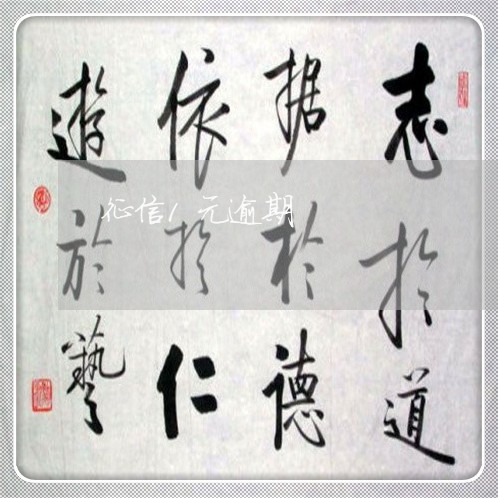 志於道
据於德
依於仁
遊於藝
征信1元逾期